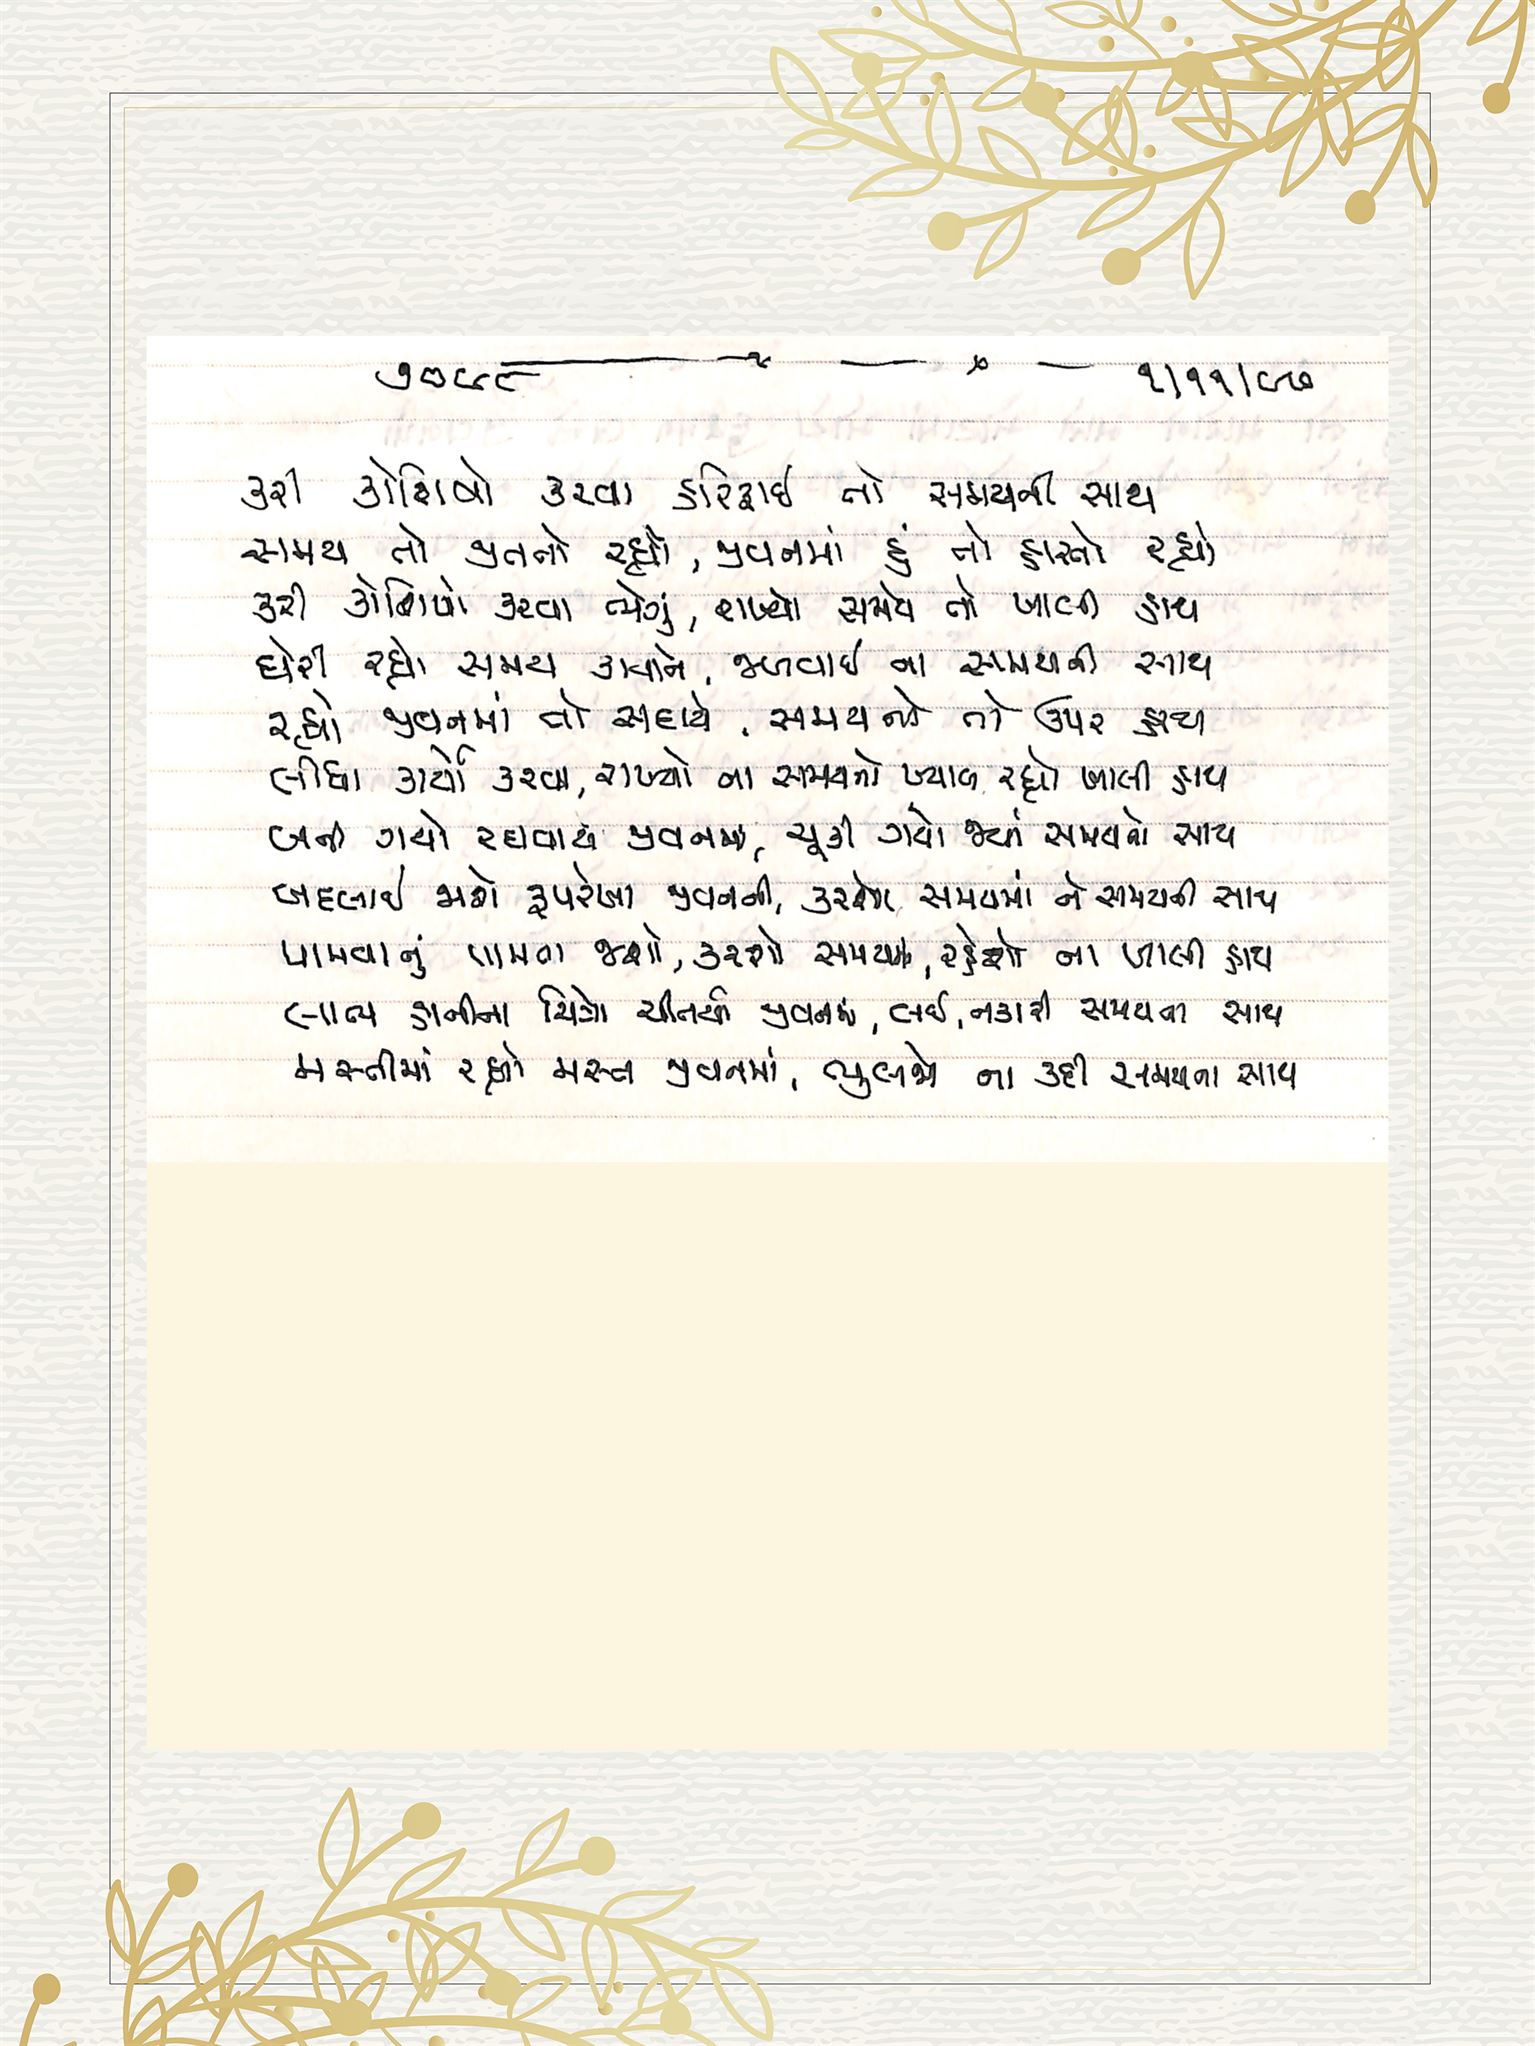 ૭૦૯૯ ૧/૧૧/૯૭
કરી કોશિષો કરવા હરિફાઈ તો સમયની સાથ
સમય તો જીતતો રહ્યો, જીવનમાં હું તો હારતો રહ્યો
કરી કોશિષો કરવા ભેગું, રાખ્યા સમયે તો ખાલી હાથ
દોરી રહ્યો સમય કાર્યોને, જળવાઈ ના સમયની સાથ
રહ્યો જીવનમાં તો સદાયે, સમયનો તો ઉપર હાથ
લીધા કાર્યો કરવા, રાખ્યો ના સમયનો ખ્યાલ રહ્યો ખાલી હાથ
બની ગયો રઘવાયો જીવનમાં, ચૂકી ગયો જ્યાં સમયનો સાથ
બદલાઈ જાશે રૂપરેખા જીવનની, કરશો સમયમાં ને સમયની સાથ
પામવાનું પામવા જાશો, કરશો સમયમાં, રહેશો ના ખાલી હાથ
લાભ હાનીના ચિત્રો ચીતર્યા જીવનમાં, લઈ, નકારી સમયના સાથ
મસ્તીમાં રહ્યો મસ્ત જીવનમાં, ભુલજો ના કદી સમયના સાથ